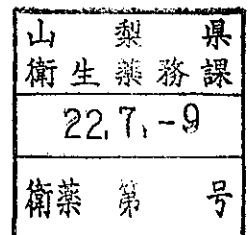 山梨県
衛生薬務課
22.7.-9
衛薬第 号